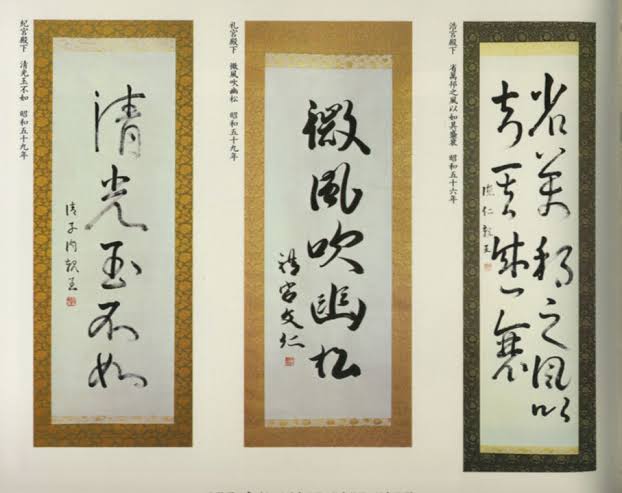 浩宮殿下 省萬邦之風以知其盛衰 昭和五十六年
省萬邦之風以
知其盛衰
徳仁親王
礼宮殿下 微風吹幽松 昭和五十九年
微風吹幽松
禮宮文仁
紀宮殿下 清光玉不如 昭和五十九年
清光玉不如
清子内親王